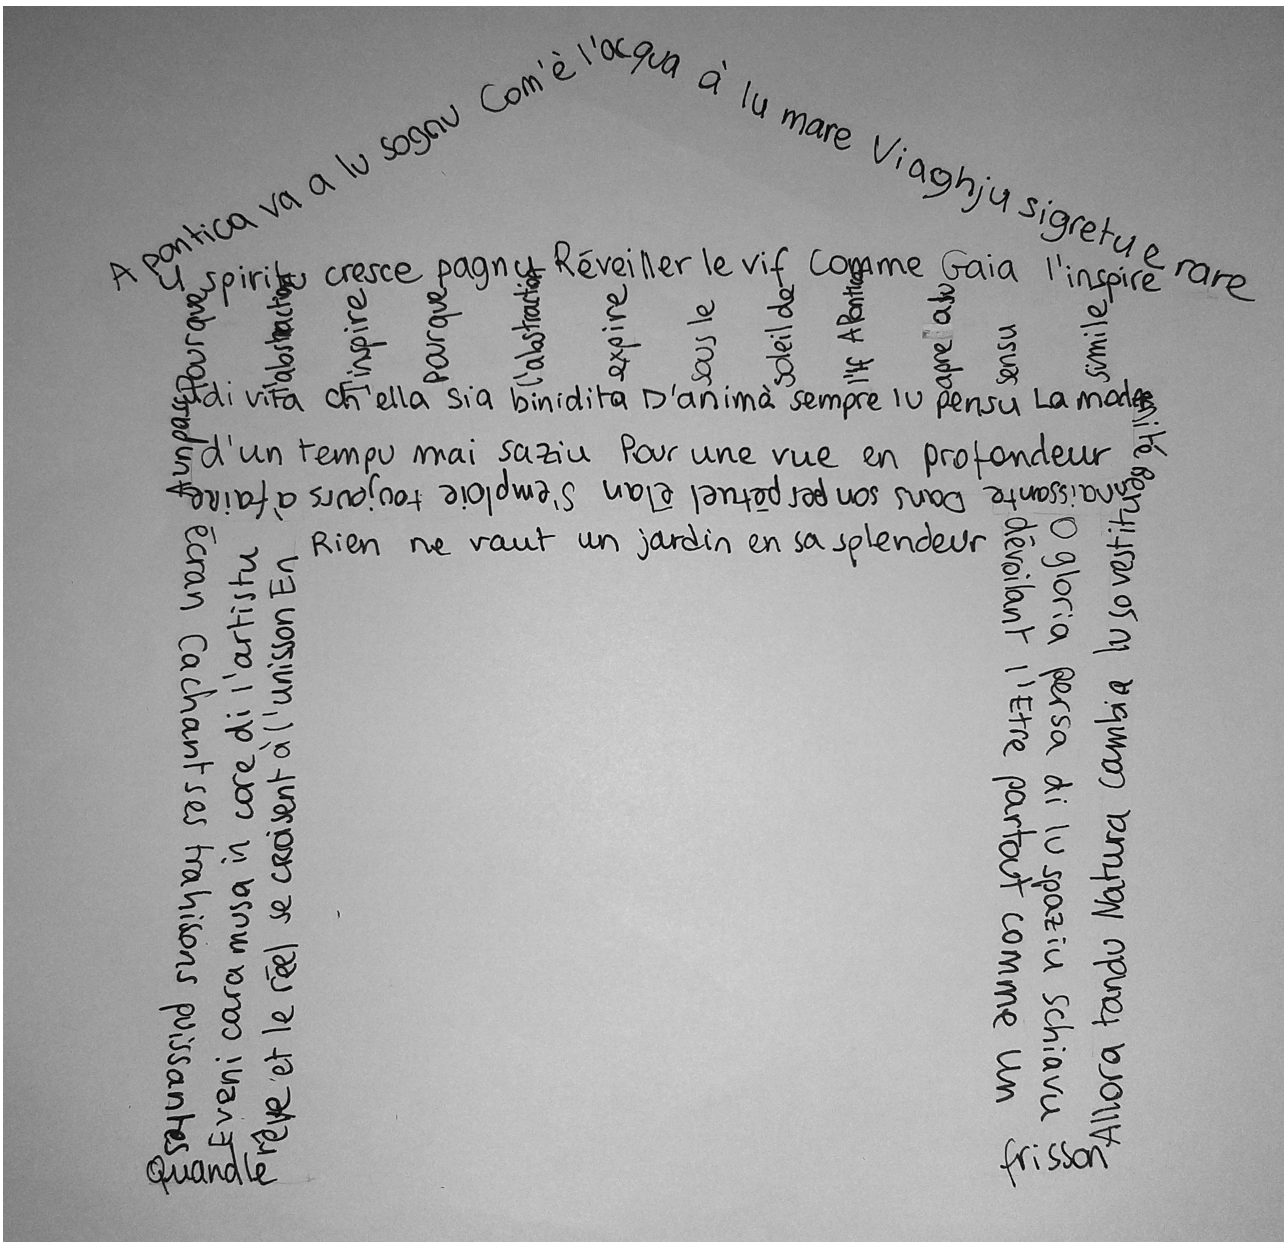 A pantica va a lu sognu Com'è l'acqua à lu mare Viaghju sigretu e rare
U spiritu cresce pagnu Réveiller le vif Comme Gaia l'inspire
l'abstraction
inspire
parque
l'abstraction
expire
sous le
soleil de
l'if A Pantica
apre a lu
sensu
simile
di vita ch'ella sia binidita D'animà sempre lu pensu La modernité
d'un tempu mai saziu Pour une vue en profondeur
Dans son perpétuel élan s'emploie toujours à faire
écran Cachant ses trahisons puissantes
Eveni cara musa in core di l'artistu
Quand le rêve et le réel se croisent à l'unisson En
Rien ne vaut un jardin en sa splendeur
dévoilant l'Etre partout comme un frisson
O gloria persa di lu spaziu schiavu
Allora tandu Natura Cambia lu so vestitu